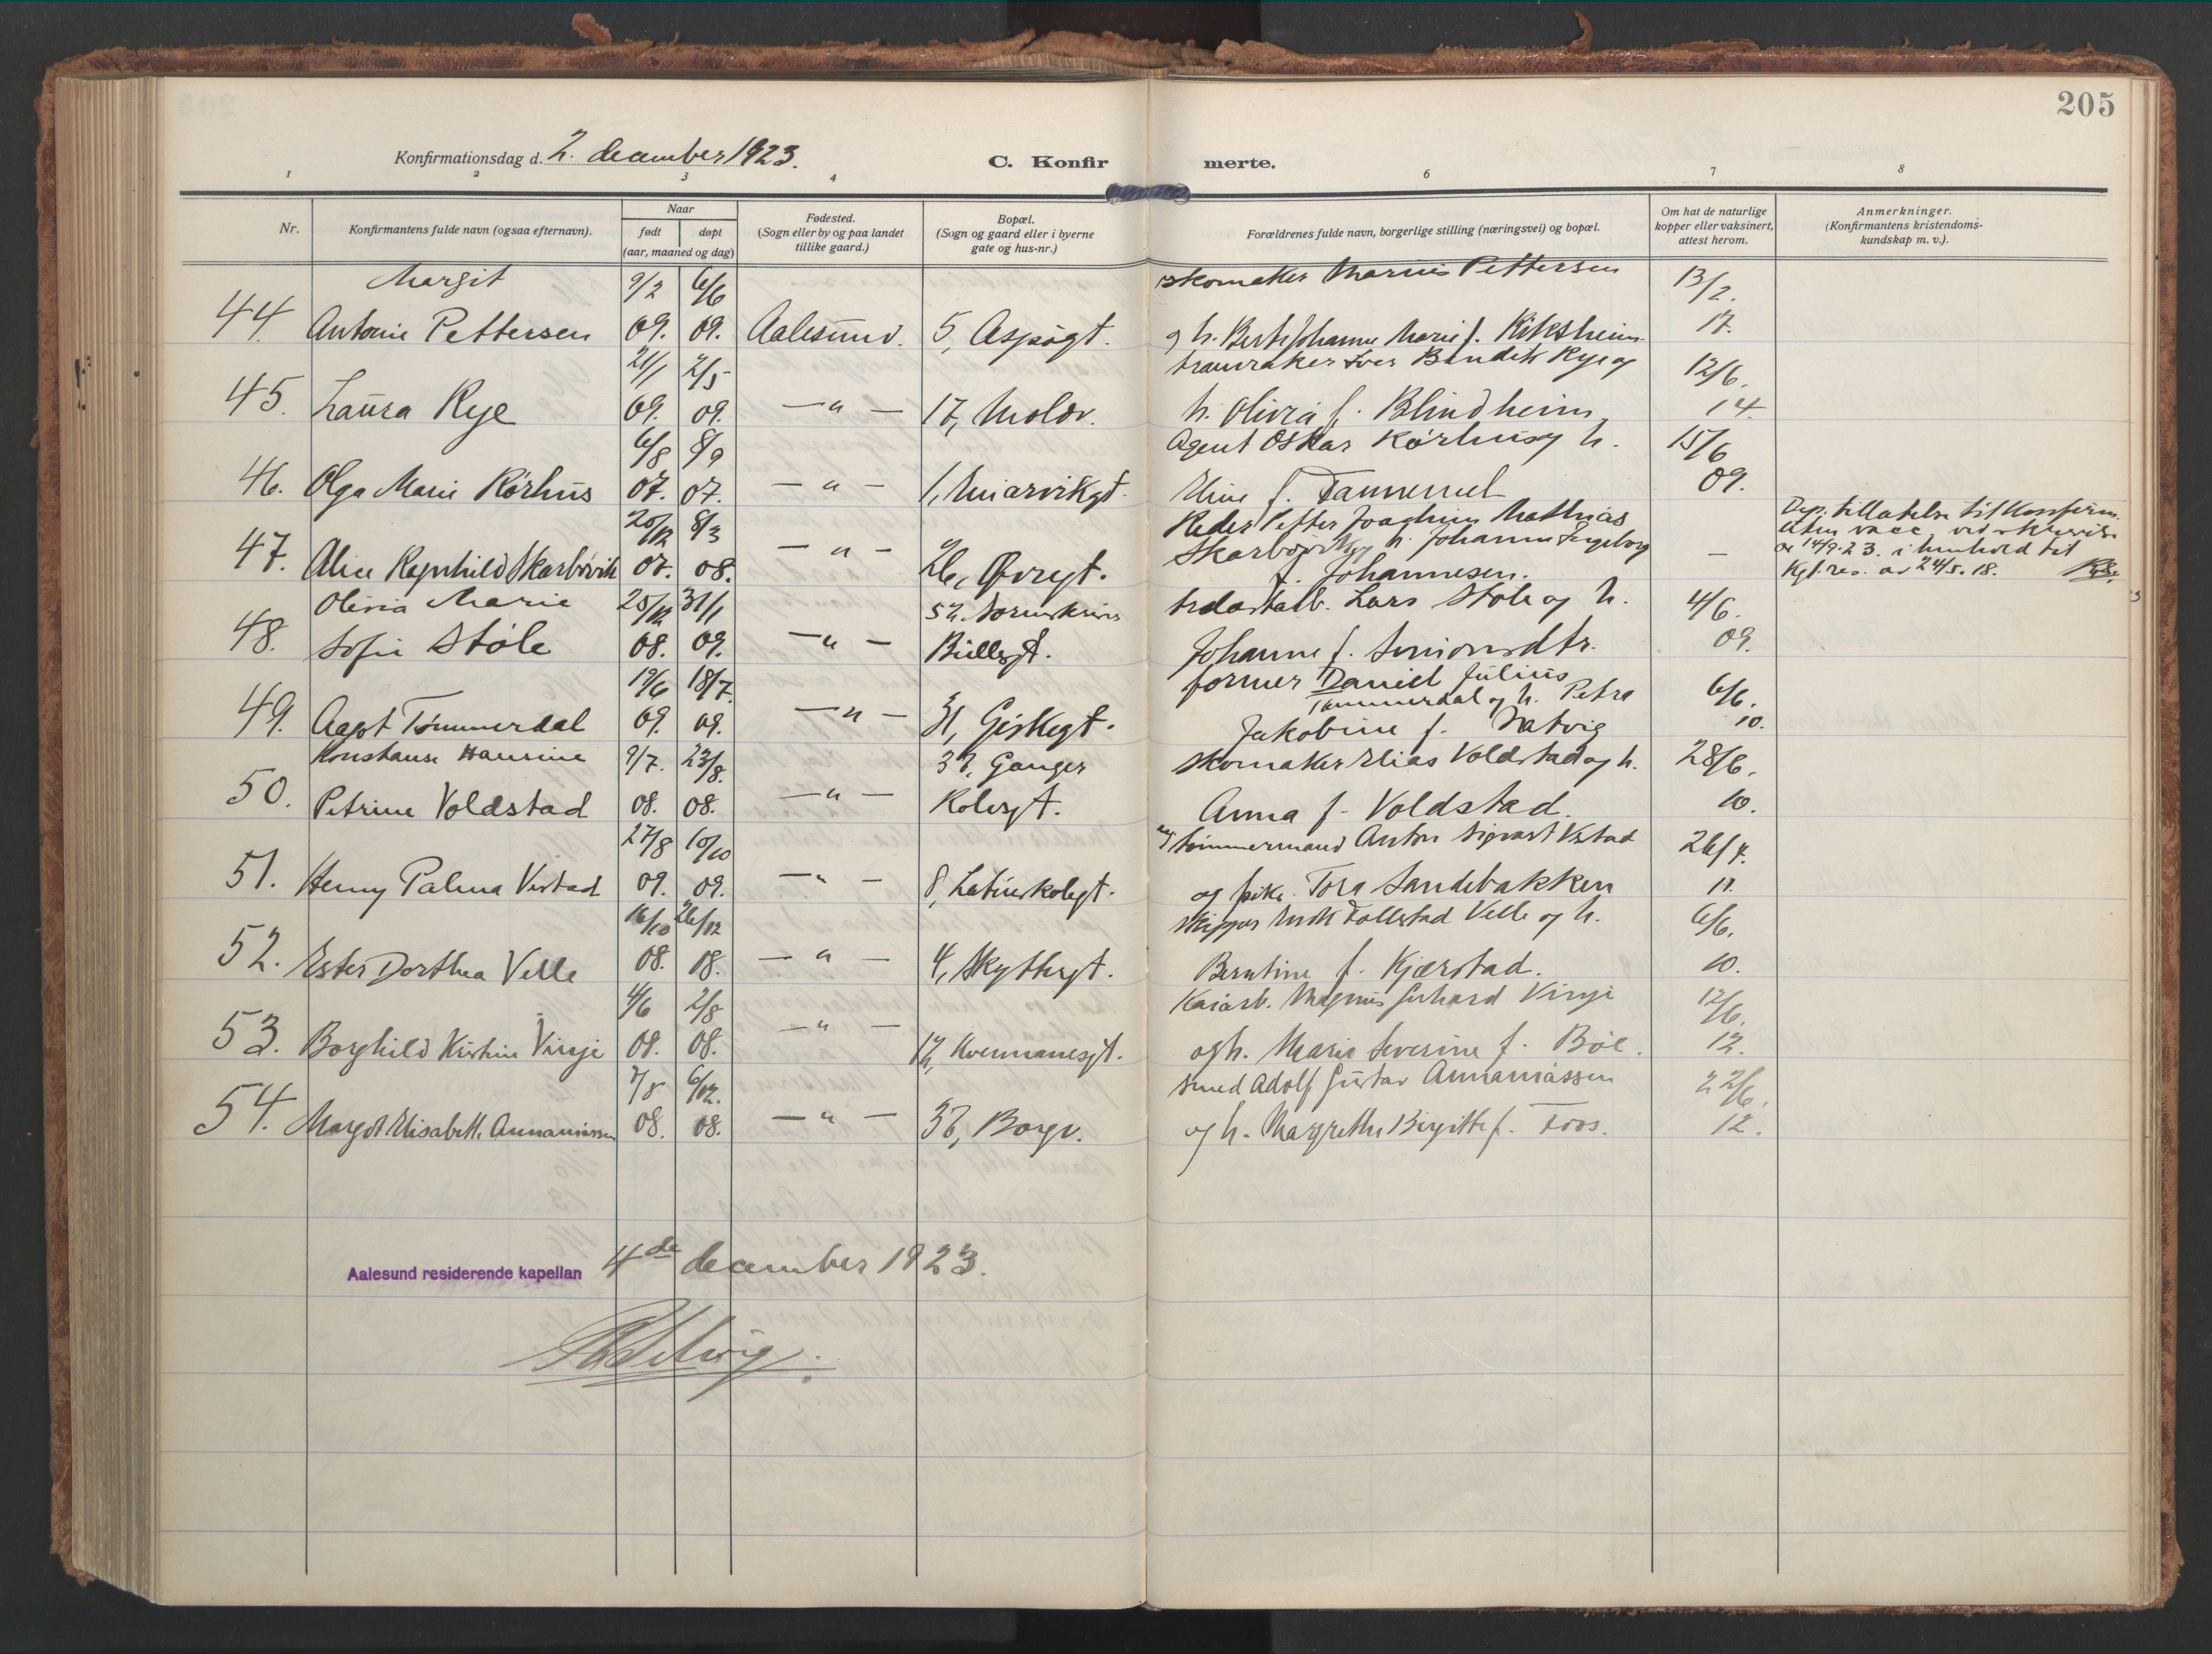 205
Konfirmationsdag d. 2. december 1923.
C. Konfirmerte.
1 2 3 4 6 7 8
Nr.
Konfirmantens fulde navn (ogsaa efternavn).
Naar
født døpt
(aar, maaned og dag)
Fødested.
(Sogn eller by og paa landet
tillike gaard.)
Bopæl.
(Sogn og gaard eller i byerne
gate og hus-nr.)
Forældrenes fulde navn, borgerlige stilling (næringsvei) og bopæl.
Om hat de naturlige
kopper eller vaksinert,
attest herom.
Anmerkninger.
(Konfirmantens kristendoms-
kundskap m. v.).
Margit 9/2 6/6 skomaker Marius Pettersen 13/2.
44. Antonie Pettersen 09. 09. Aalesund. 5, Aspøgt. og h. Berte Johanne Marie f. Kiksheim 17.
21/1 2/5 tranvraker Iver Bendik Rye og 12/6.
45. Laura Rye 09. 09. — " — 17, Molov. h. Olivia f. Blindheim 14.
6/8 8/9 Agent Oskar Kørhus og h. 15/6
46. Olga Marie Kørhus 07. 07. — " — 1, h. Eline f. 09.
20/12 8/3 Reder Petter Joachim Mathias
47. Alice Ragnhild Skarbøvik 07. 08. — " — 26, Øvregt. Skarbøvik og h. Johanne Ingeborg —
f. Johannesen.
Dep. tillatelse til Konfirm.
uten vacc. ved skrivelse
av 14/9-23. i henhold til
Kgl. res. av 24/5. 18.
Olivia Marie 25/12 31/1 52, Lars Støle og h. 4/6.
48. Sofie Støle 08. 09. — " — Bullsgt. Johanne f. Simonsdtr. 09.
19/6 18/7. former Daniel Julius
49. Aagot Tømmerdal 09. 09. — " — 31, Giskegt. Tømmerdal og h. Petra 6/6.
Jakobine f. Natvig 10.
Konstanse Hansine 9/7. 23/8. 33, Ganger skomaker Elias Voldstad og h. 28/6.
50. Petrine Voldstad 08. 08. — " — Rolvsgt. Anna f. Voldstad. 10.
27/8 10/10 tømmermand Anton Sigvart Vestad 26/4.
51. Henny Palma Vestad 09. 09. — " — 8, Latinskolegt. og pike Tora Sandebakken 11.
16/10 26/12 skipper Follestad Velle og h. 6/6.
52. Ester Dorthea Velle 08. 08. — " — 4, Skyttergt. Berntine f. Kjærstad. 10.
4/6 2/8 Kaiarb. Magnus Gerhard Vinje 12/6.
53. Borghild Kristine Vinje 08. 08. — " — 12, Kvennanesgt. og h. Marie Severine f. Bøe. 12.
7/8 6/12. smed Adolf Gustav Annaniassen 22/6.
54. Margot Elisabeth Annaniassen 08. 08. — " — 36, Borgv. og h. Margrethe Birgitte f. Foos. 12.
Aalesund residerende kapellan 4de december 1923.